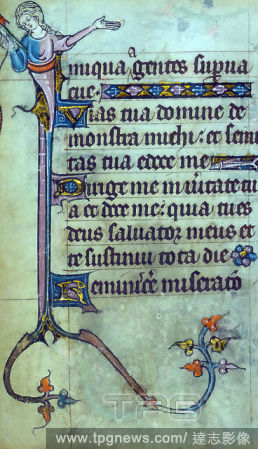 a
iniqua agentes sup[er]vacue.
Vias tua domine demonstra michi: et semi
tas tua edoce me
Dirige me in v[er]itate tu
a et doce me: quia tu es
deus salvator meus et
te sustinui tota die
Reminisce[re] miserato
TPG
www.tpgnews.com/ 達志影像